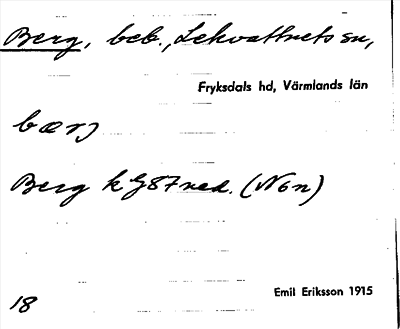 Berg, beb., Lekvattnets sn,
Fryksdals hd, Värmlands län
bærj
Berg k G87ned. (Nön)
Emil Eriksson 1915
18